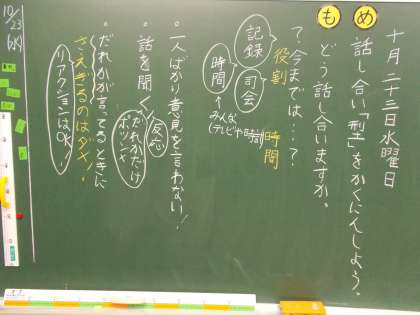 十月二十三日水曜日
めも
話し合い「型」をかくにんしよう。
どう話し合いますか。
?、今までは…?
役割
時間
記録
司会
時間
↑みんな
(テレビや時計)
。一人ばかり意見を言わない!
。話を聞く
反応
だれかだけ
ポツン×
。だれかが言ってるときに
さえぎるのはダメ!
リアクションはOK!
10/23
(水)